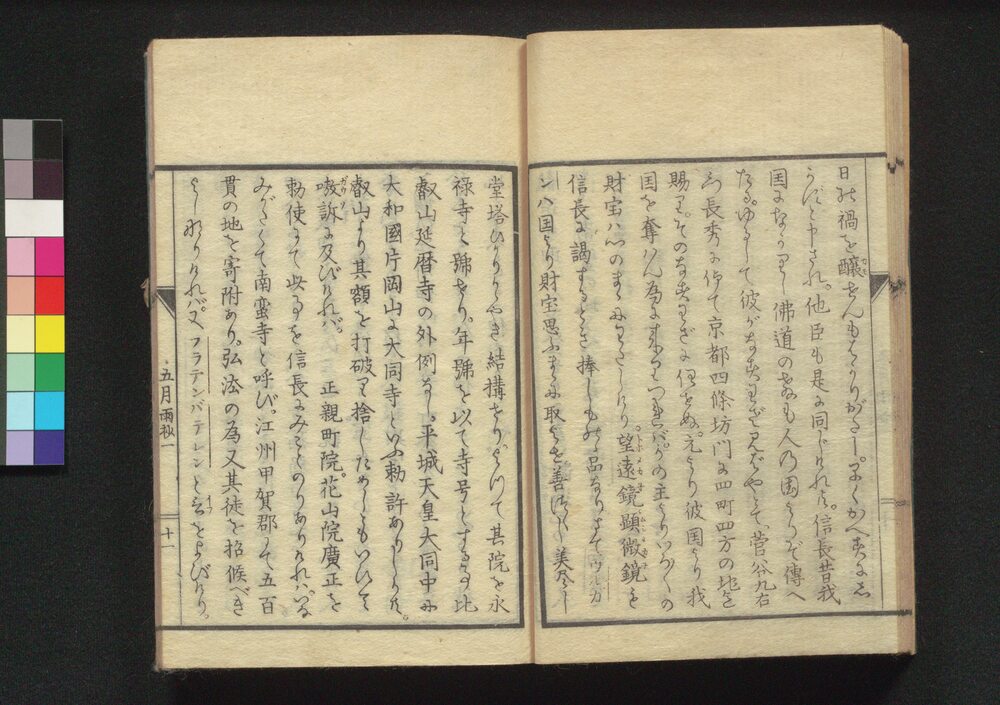 日の禍を醸せんもはかりがたし。早くかへすにし
かじと申されければ。他臣も是に同じければ。信長昔我
国になかりし佛道のおしへも人の国よりぞ傳へ
たる。ゆるして彼がなすわざ見ばやとて。菅谷九右
長秀に仰て京都四條坊門に四町四方の地を
賜ひ。そのなすわざに任せぬ。元より彼国より我
国を奪はん為に来りつれば。かの主よりいかくの
財宝は心のまゝにおくりたりけり。望遠鏡顕微鏡を
信長に謁するとき捧しもの品なり。さてウルガ
ンハ国より財宝思ふまゝに取よせ善つくし美尽し
堂塔ひかりかゞやき結構せり。よつて其院を永
禄寺と號せり。年號を以て寺号とする事比
叡山延暦寺の外例なし。平城天皇大同中に
大和國片岡山に大同寺といふ勅許ありしかば。
叡山より其額を打破り捨しためしもいひて
嗷訴に及びければ。正親町院。花山院廣正を
勅使にて此事を信長にみことのりありければ。いなみがたくて
南蛮寺と呼び。江州甲賀郡にて五百
貫の地を寄附あり。弘法の為又其徒を招候べき
よしなりければ。又フラテンバテレンと云をよびけり。
五月雨抄一
十一